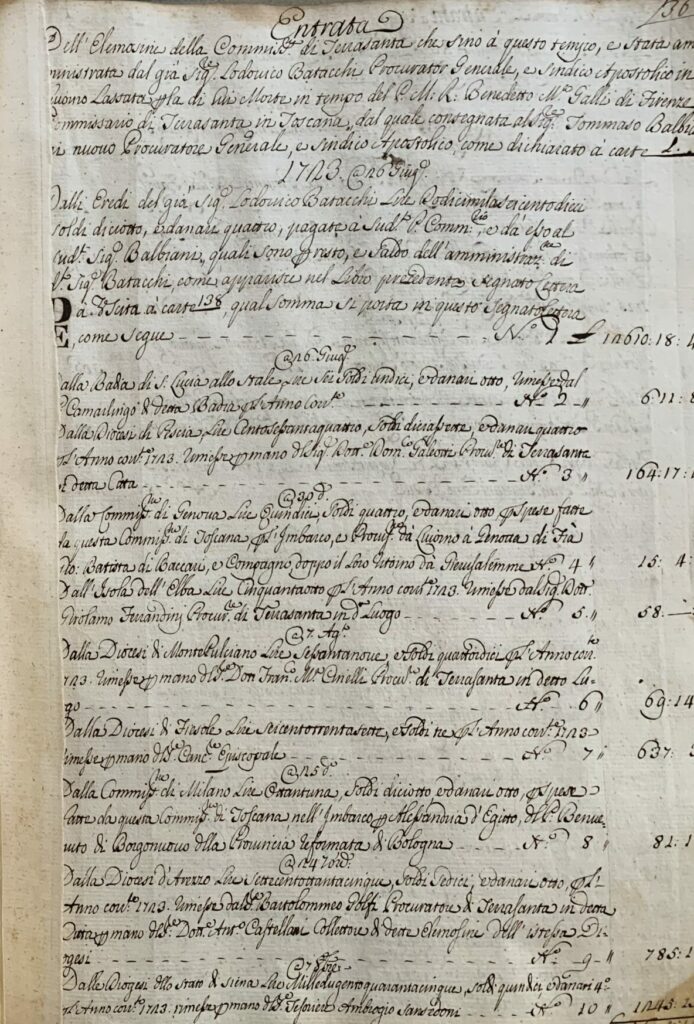 136
Entrata
Dell' Elemosine della Commiss.e di Terrasanta che sino à questo tempo, e stata am
ministrata dal già Sig.r Lodovico Batacchi Procurator Generale, e Sindico Apostolico in
Lassata di Lui Morte in tempo del P. M. R. Benedetto M.a Galli di Firenze
Commissario di Terrasanta in Toscana, dal quale consegnata al Sig.r Tommaso Balbi
nuovo Procuratore Generale, e Sindico Apostolico, come dichiarato à carte 1.
1723. @ 26 Giug.o
Dalli Eredi del già Sig.r Lodovico Batacchi Lire Dodicimilaseicentodieci
soldi diciotto, e danari quattro, pagate à Sud.o P. Comm.rio, e dà esso al
Sud.o Sig.r Balbiani, quali sono resto, e saldo dell'amministraz.ne di
Sig.r Batacchi, come apparisce nel Libro precedente Segnato Lettera
D à carte 138, qual somma si porta in questo Segnato Lettera
E, come segue - - - N.o 1 £ 12610:18:4
@ 26 Giug.o
Dalla Badia di S. Lucia allo Stale, Lire Sei Soldi Undici, e danari otto, rimesse dal
P. Camarlingo di detta Badia p. l'Anno corr.te - - - N.o 2 -" 6:11:8
Dalla Diocesi di Pescia Lire Centosessantaquattro, Soldi diciassette, e danari quattro
p. l'Anno corr.te 1723. rimesse p mano del Sig.r Dott.r Dom.co Galeotti Procur.e di Terrasanta
in detta Città - - - N.o 3 " 164:17:
@ 30 d.o
Dalla Commiss.e di Genova Lire Quindici, Soldi quattro, e danari otto, p Spese fatte
da questa Commiss.e di Toscana, p l'Imbarco, e dà Livorno à Genova di Frà
Gio: Batista di Baccau, e Compagno doppo il Loro ritorno dà Gierusalemme N.o 4 " 15:4:
Dall'Isola dell'Elba Lire Cinquantaotto p l'Anno corr.te 1723. rimesse dal Sig.r Dott.r
Girolamo Ferrandini Procur.e di Terrasanta in d.o Luogo - - - N.o 5." 58:—
@ 7. Ag.o
Dalla Diocesi di Monte Pulciano Lire Sessantanove, e Soldi quattordici p l'Anno corr.te
1723. rimesse p mano del S.r Dott. Fran.co M.a Cinelli Procur.e di Terrasanta in detto Lu-
go - - - N.o 6 " 69:14
Dalla Diocesi di Fiesole Lire Seicentotrentasette, e Soldi tre p l'Anno corr.te 1723
rimesse p mano del S.r Canc.re Episcopale - - - N.o 7 " 637:3
@ 25 d.o
Dalla Commiss.e di Milano Lire Ottantuna, Soldi diciotto e danari otto, p Spese
fatte da questa Commiss.e di Toscana nell'Imbarco p Alessandria d'Egitto, del P. Benve-
nuto di Borgonuovo della Provincia Reformata di Bologna - - - N.o 8 " 81:1
Dalla Diocesi d'Arezzo Lire Settecentottantacinque, Soldi Sedici, e danari otto, p l'
Anno corr.te 1723. rimesse dal S.r Bartolommeo Procuratore di Terrasanta in detta
Città p mano del S.r Dott.r Ant.o Castellani Collettore di dette elemosine dell'istessa Di-
ogesi - - - N.o 9 -" 785:1
Dalle Diogesi dello Stato di Siena Lire Milledugentoquarantacinque, soldi quindici e danari 4.o
p l'Anno corr.te 1723. rimesse p mano del S.r Tesoriere Ambrogio Sansedoni - - N.o 10 " 1245: